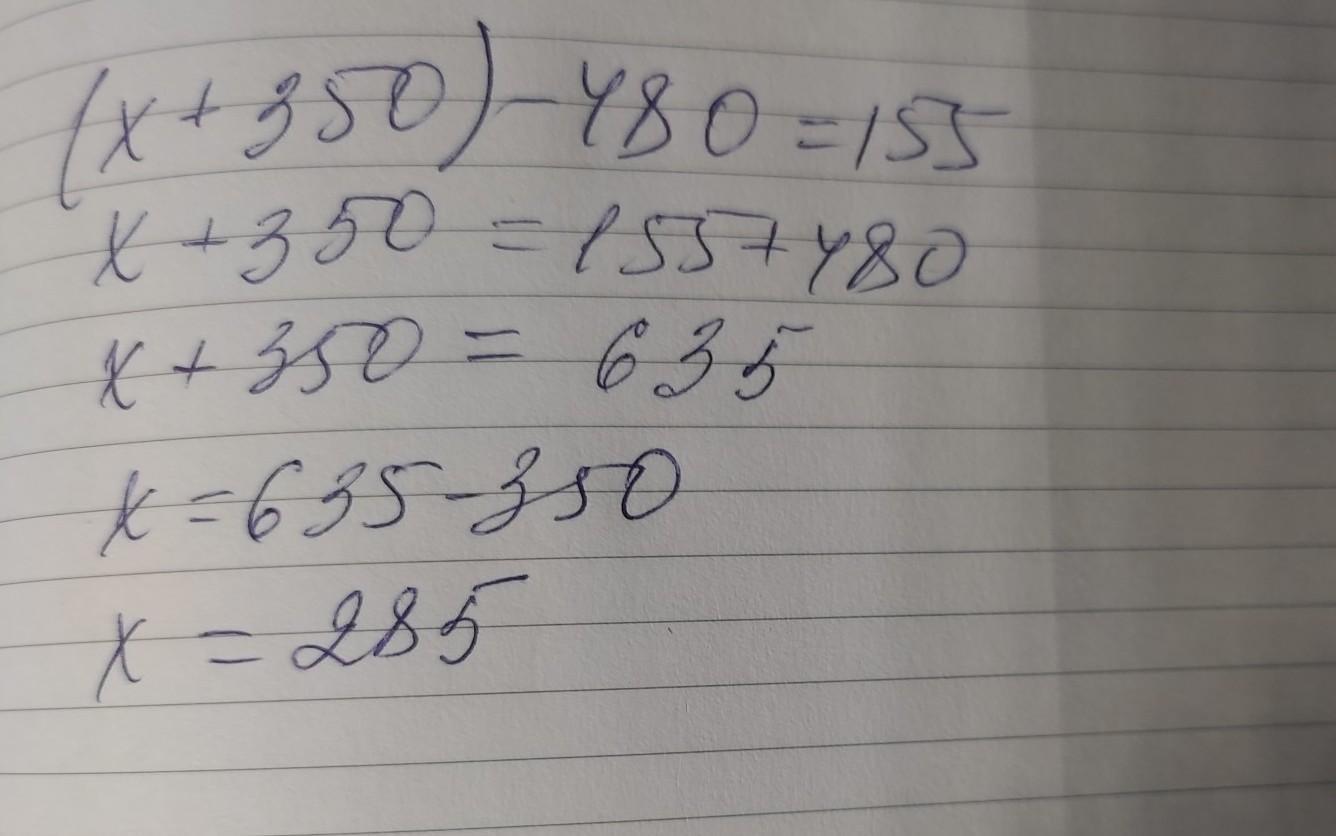 (x+350)-480=155
x+350=155+480
x+350=635
x=635-350
x=285